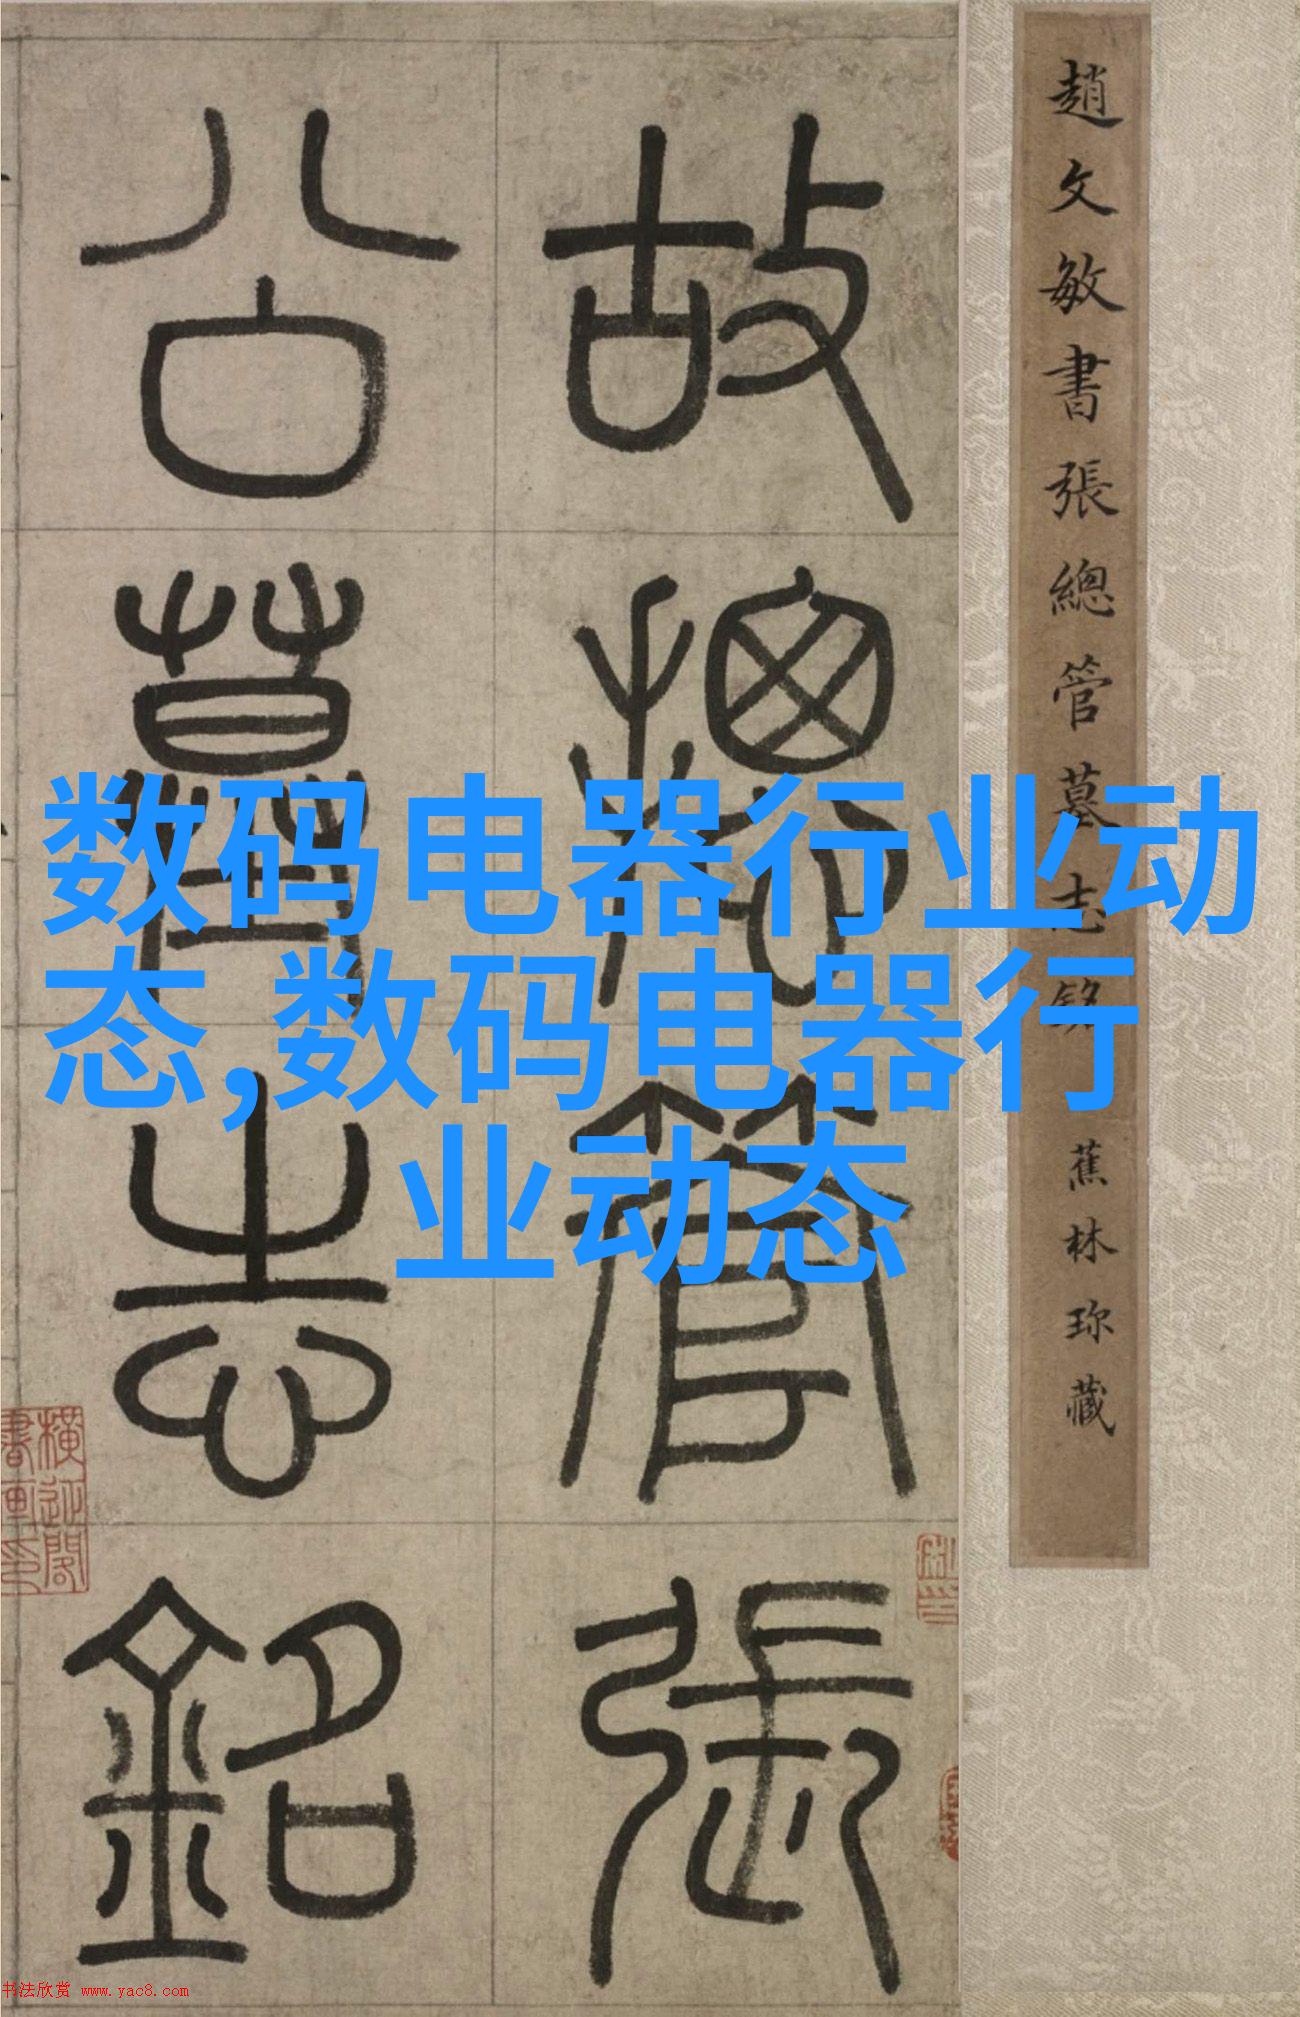 趙文敏書張總管墓志銘 蕉林珎藏
故摠管張
公墓志銘
数码电器行业动
态,数码电器行
业动态
書法欣赏 www.yac8.com